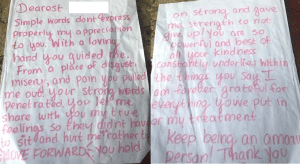 Dearest
Simple words dont express
Properly my appreciation
to you. With a loving
hand you guided me.
From a place of disgust,
misery, and pain you pulled
me out. Your strong words
penetrated, you let me
share with you my true
feelings so they didnt have
to sit and hurt me rather
MOVE FORWARD you hold
on strong, and gave
my strength to not
give up! You are so
powerful and best of
all your kindness
constantly underlies within
the things you say. I
am forever grateful for
everything youve put in
for my treatment
Keep being an amazing
Person! Thank You